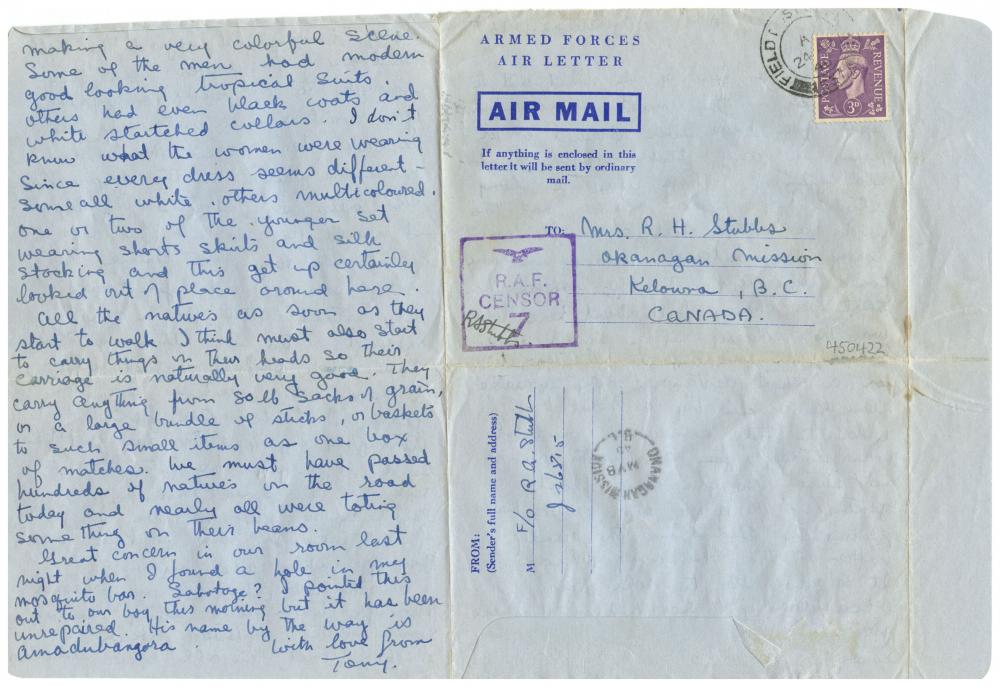 making a very colorful scene.
Some of the men had modern
good looking tropical suits.
others had even black coats and
white startched collars. I don't
know what the women were wearing
since every dress seems different -
some all white, others multicoloured.
one or two of the younger set
wearing shorts skirts and silk
stocking and this get up certainly
looked out of place around here.
All the natives as soon as they
start to walk I think must also start
to carry things on their heads so their
carriage is naturally very good. They
carry anything from 80 lb sacks of grain,
or a large bundle of sticks, or baskets
to such small items as one box
of matches. We must have passed
hundreds of natives on the road
today and nearly all were toting
something on their beans.
Great concern in our room last
night when I found a hole in my
mosquito bar. Sabotage? I pointed this
out to our boy this morning but it has been
unrepaired. His name by the way is
Amadubangora. With love from
Tony.
ARMED FORCES
AIR LETTER
AIR MAIL
If anything is enclosed in this
letter it will be sent by ordinary
mail.
FIELD
POSTAGE REVENUE
3D
TO: Mrs. R. H. Stubbs
Okanagan Mission
Kelowna, B.C.
CANADA.
R.A.F.
CENSOR
7
RAStubbs
450422
FROM:
(Sender's full name and address)
M F/O R.A. Stubbs
J 26815
OKANAGAN MISSION
MY 8
45
B.C.